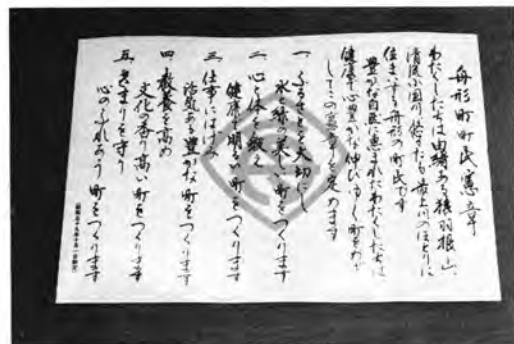 舟形町町民憲章
わたくしたちは由緒ある猿羽根山、
清流小国川、悠々たる最上川のほとりに
住まいする舟形の町民です
豊かな自然に恵まれたわたくしたちは
健康で心豊かな伸びゆく町をめざ
してこの憲章を定めます
一、ふるさとを大切にし
水と緑の美しい町をつくります
二、心と体を鍛え
健康で明るい町をつくります
三、仕事にはげみ
活気ある豊かな町をつくります
四、教養を高め
文化の香り高い町をつくります
五、きまりを守り
心のふれあう町をつくります